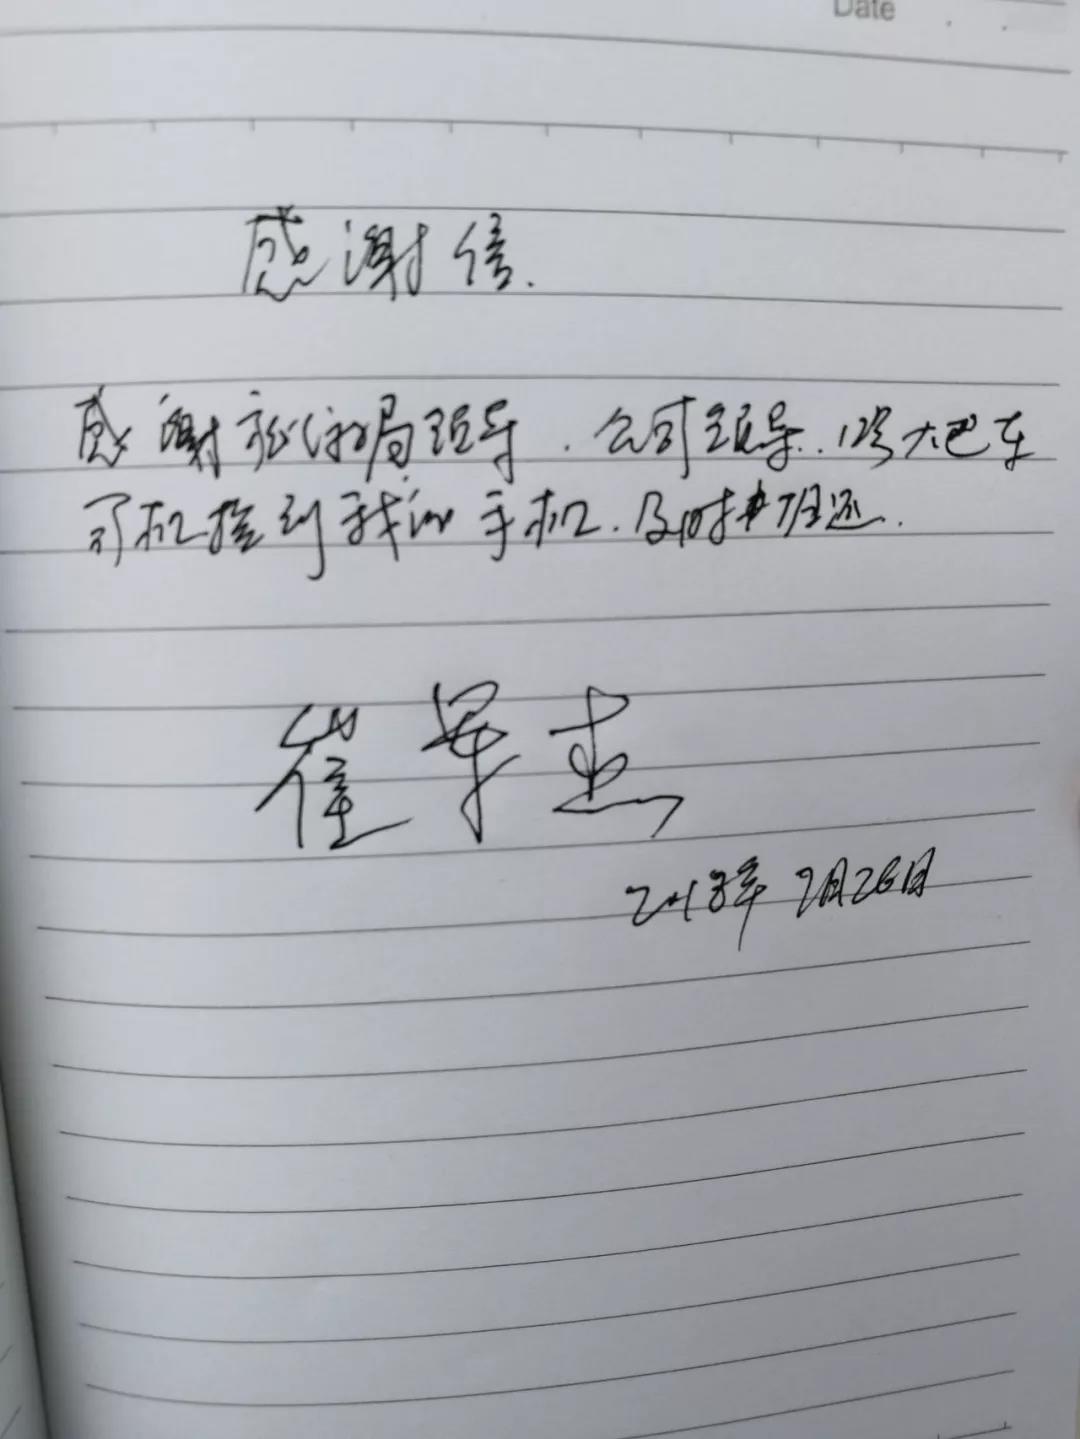 Date
感谢信.
感谢旅游局领导.公司领导.12号大巴车
司机捡到我的手机.及时归还.
崔军杰
2018年7月26日